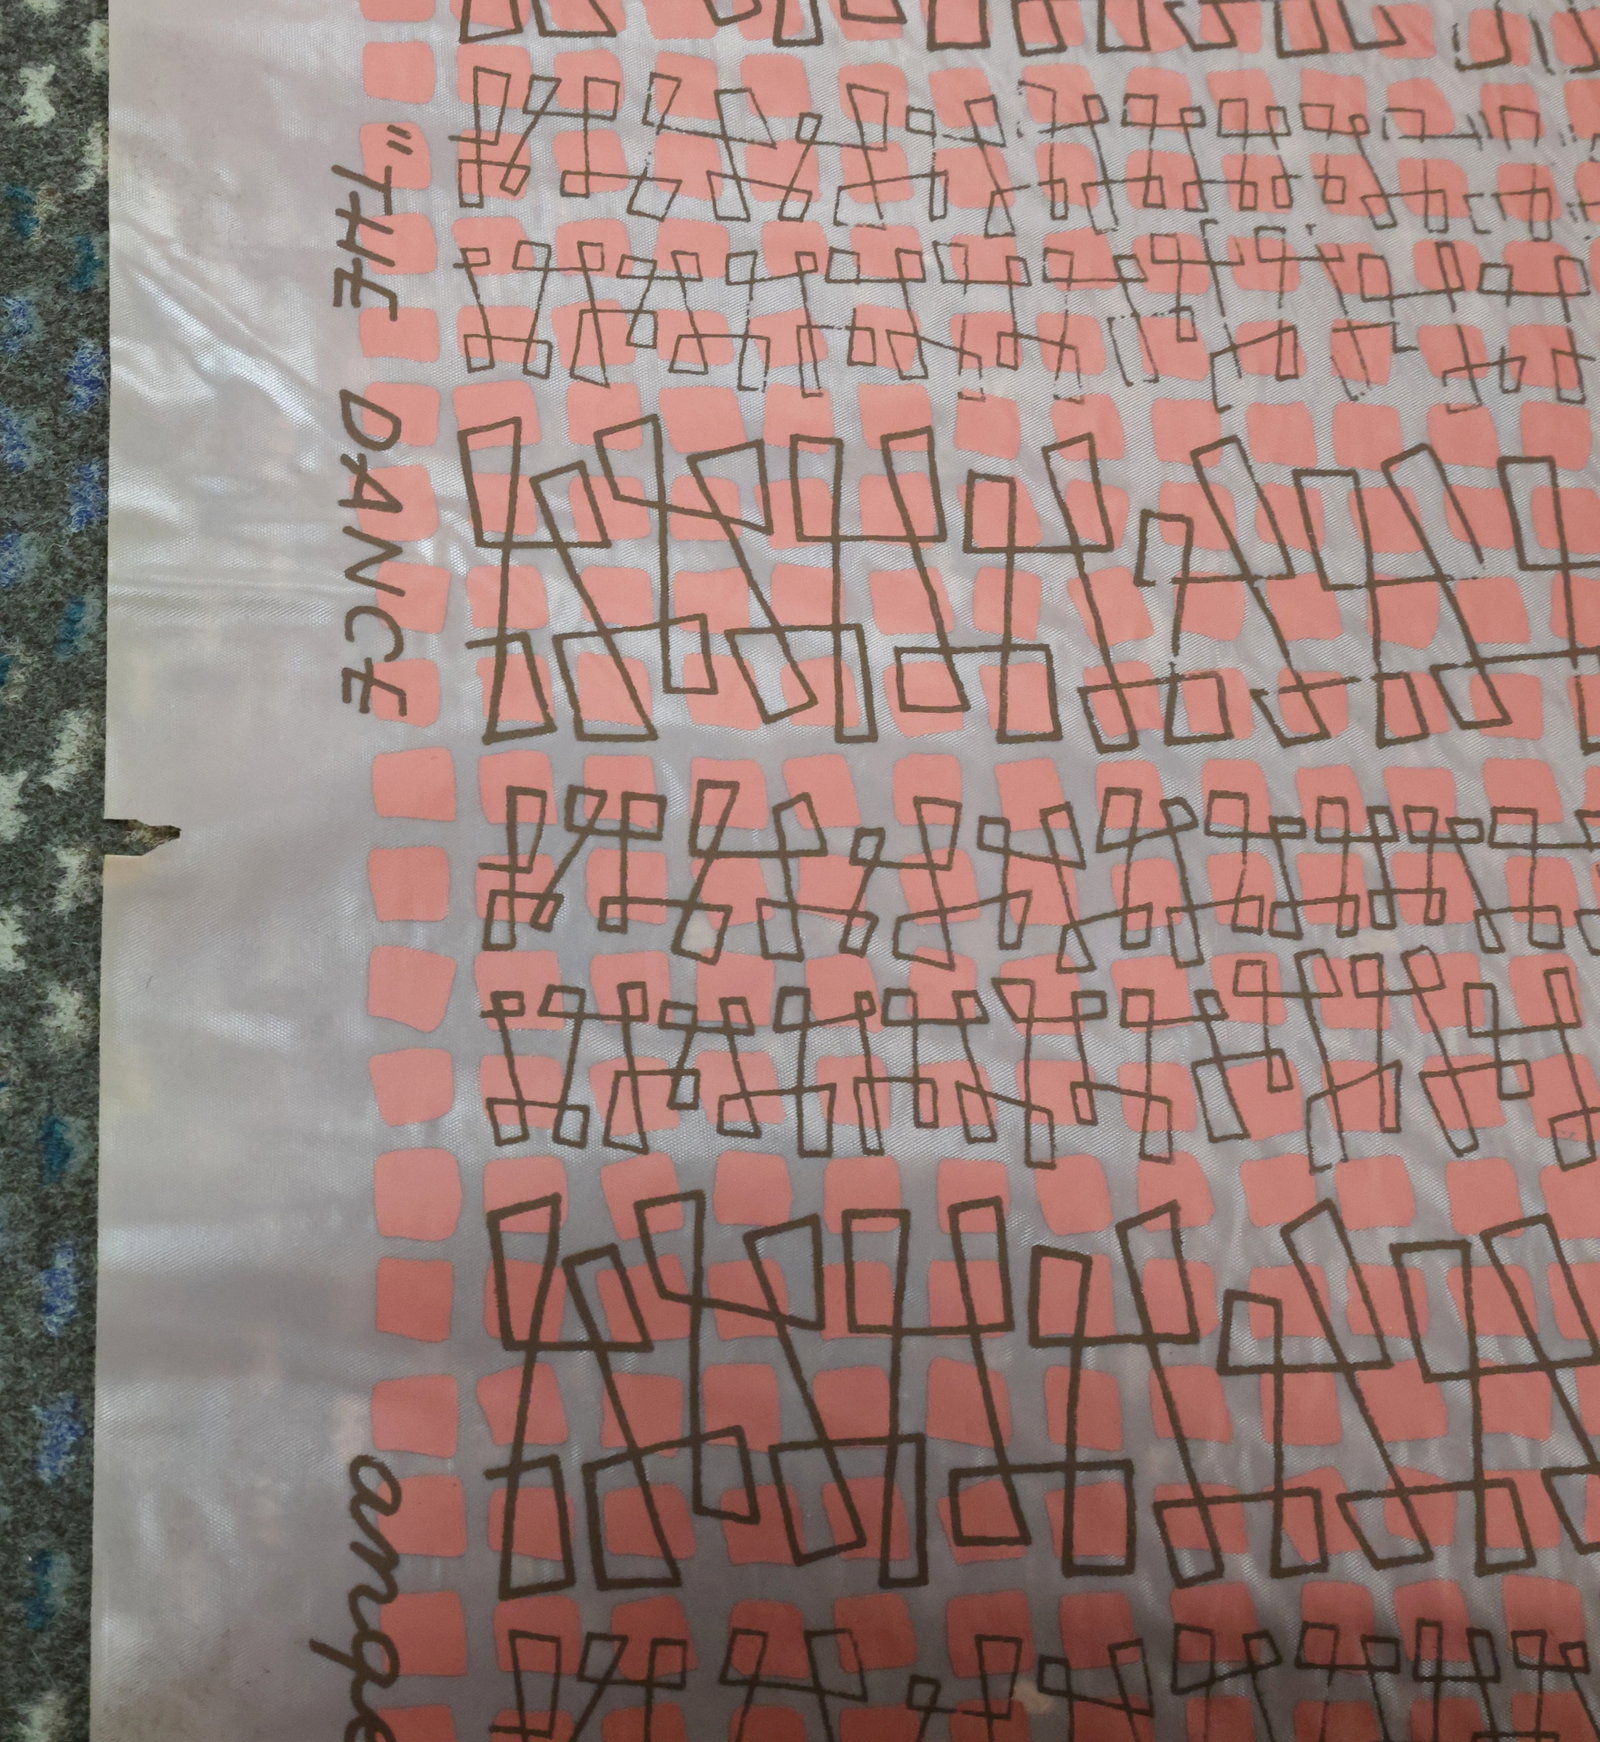 "THE DANCE
ange